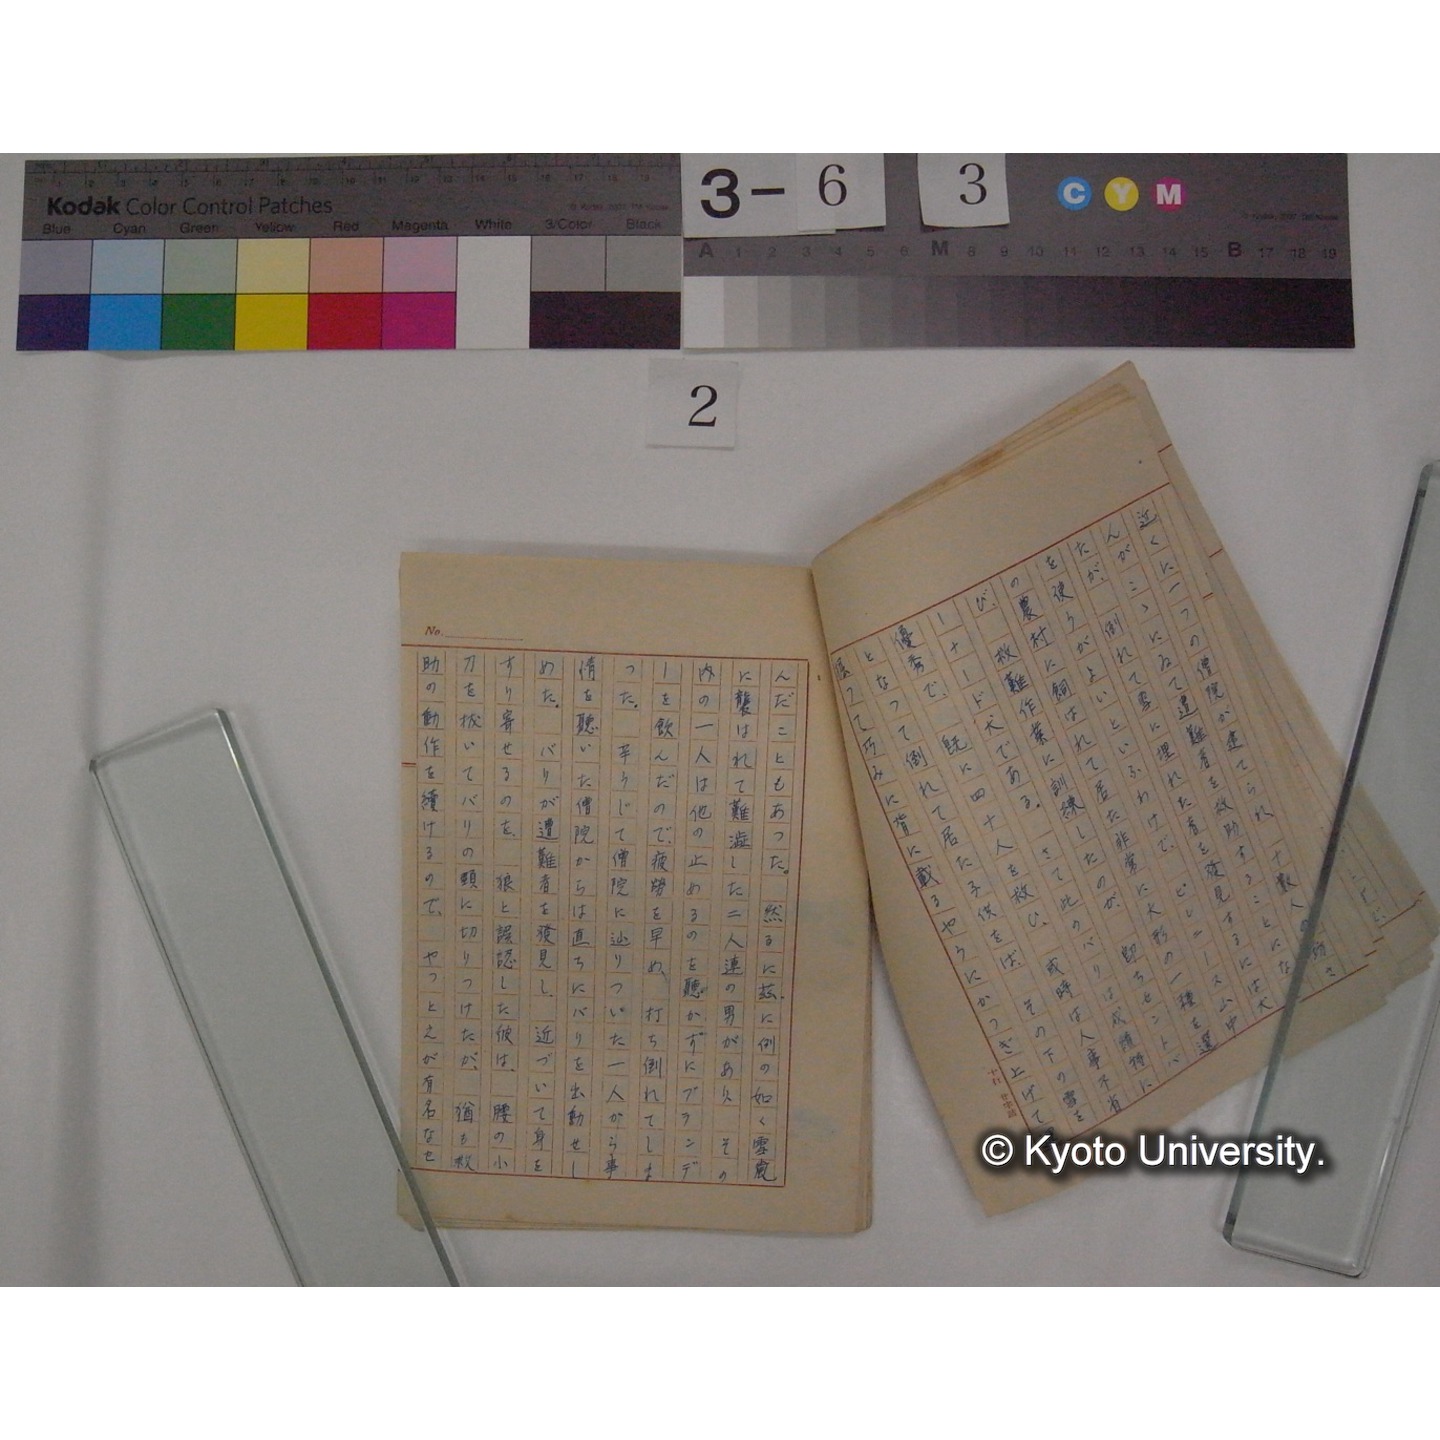 Kodak Color Control Patches
Blue Cyan Green Yellow Red Magenta White 3/Color Black
3-6 3
C Y M
A 1 2 3 4 5 6 M 8 9 10 11 12 13 14 15 B 17 18 19
2
近くに一つの僧院が建てられ 十数人の
んがこゝにゐて遭難者を救助することにな
たが、倒れて雪に埋れた者を発見するには犬
を使うがよいといふわけで、ピレニース山中
の農村に飼はれて居た非常に大形の一種を選
び、救難作業に訓練したのが、即ちセントバ
ーナード犬である。さて此のバリは成績特に
優秀で、既に四十人を救ひ、或時は人事不省
となつて倒れて居た子供をば、その下の雪を
て巧みに背に載るやうにかつぎ上げて
No.
んだこともあつた。然るに茲に例の如く雪嵐
に襲はれて難澁した二人連の男があり、その
内の一人は他の止めるのを聽かずにブランデ
ーを飲んだので、疲勞を早め、打ち倒れてしま
つた。辛うじて僧院に辿りついた一人から事
情を聽いた僧院からは直ちにバリを出動せし
めた。バリが遭難者を発見し、近づいて身を
すり寄せるのを、狼と誤認した彼は、腰の小
刀を抜いてバリの頸に切りつけたが、猶も救
助の動作を續けるので、やつとこれが有名なセ
© Kyoto University.